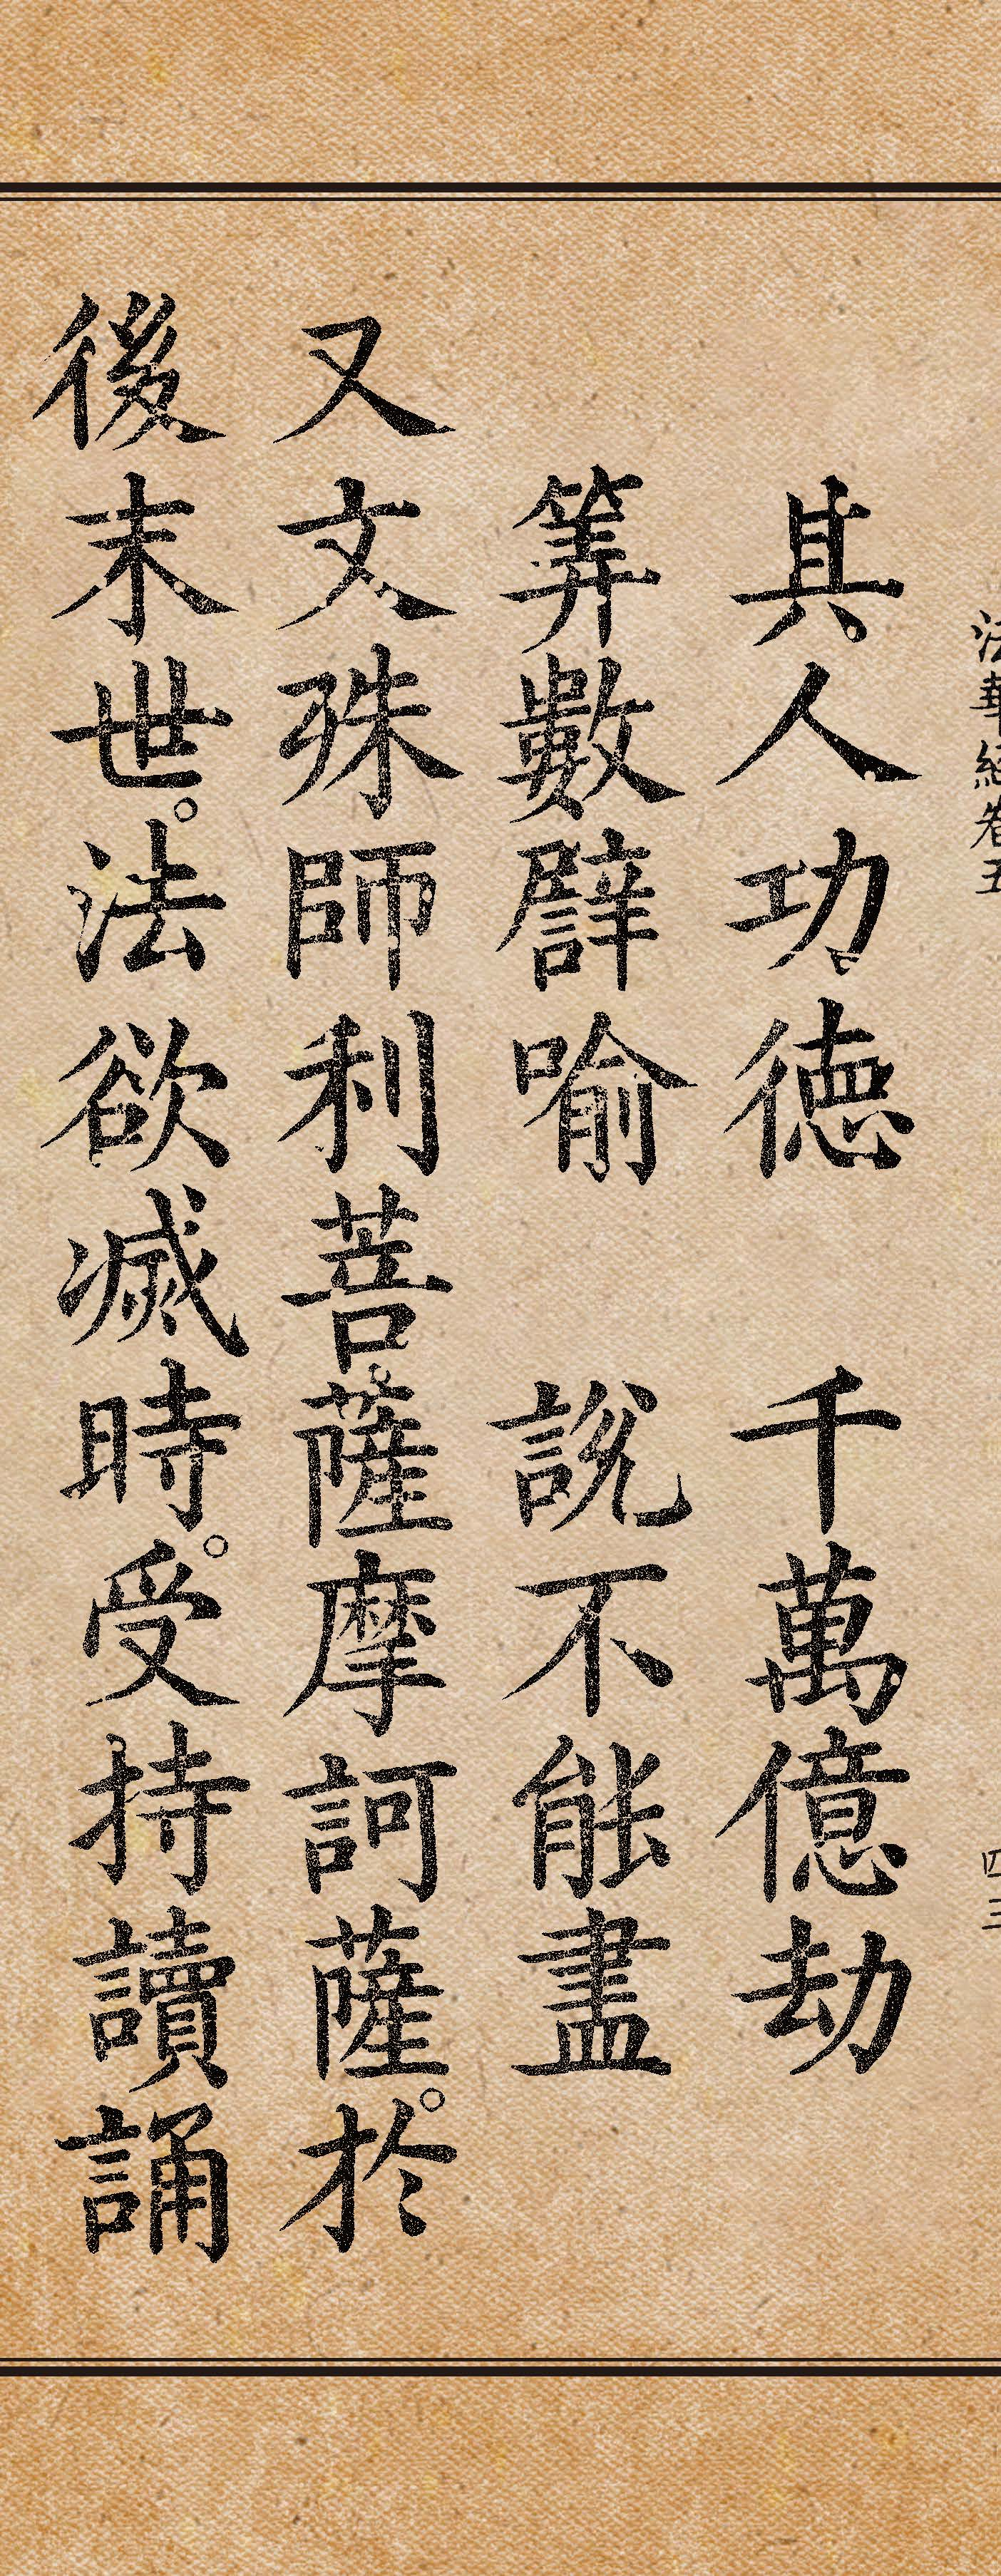 法華經卷五 四三
其人功德 千萬億劫
筭數譬喻 說不能盡
又文殊師利菩薩摩訶薩。於
後末世。法欲滅時。受持讀誦